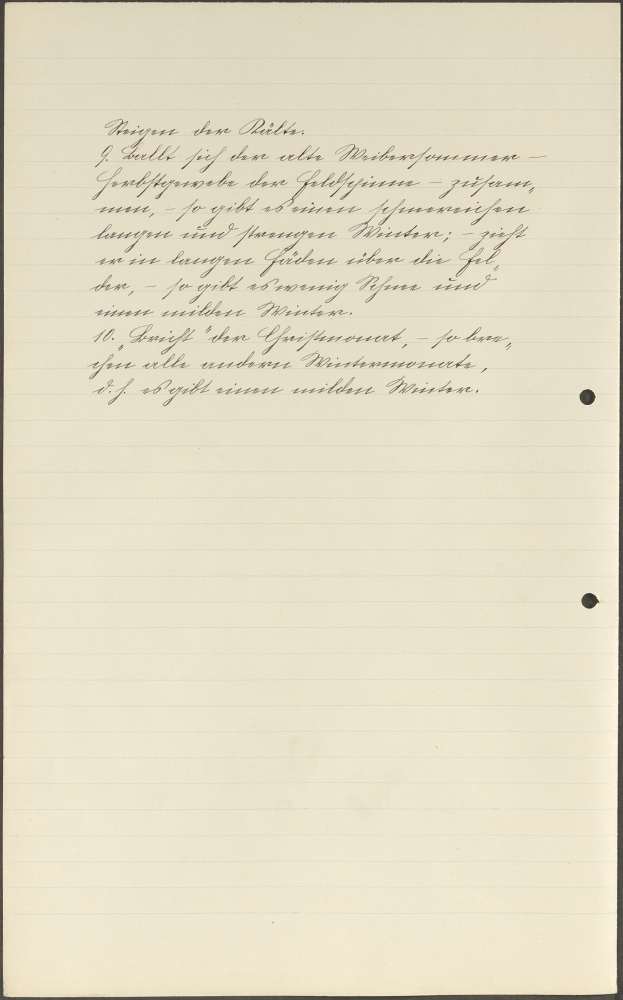 Steigen der Kälte.
9. Ballt sich der alte Weibersommer –
Herbstgewebe der Feldspinne – zusam„
men, – so gibt es einen schneereichen
langen und strengen Winter; – zieht
er in langen Fäden über die Fel„
der, – so gibt es wenig Schnee und
einen milden Winter.
10. „Bricht" der Christmonat, – so bre„
chen alle andern Wintermonate,
d. h. es gibt einen milden Winter.